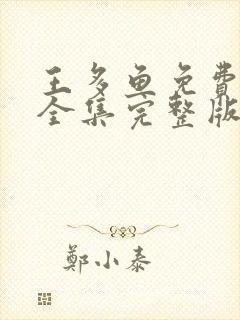 王多鱼免費
全集完整版
鄭小泰